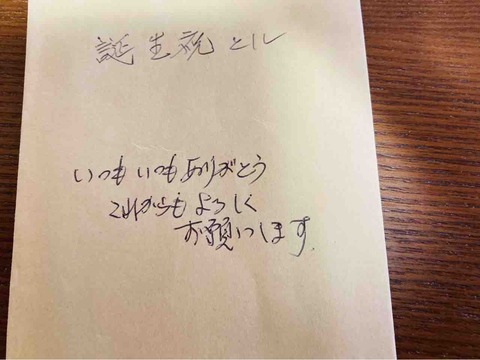 誕生祝として
いつもいつもありがとう
これからもよろしく
お願いします。